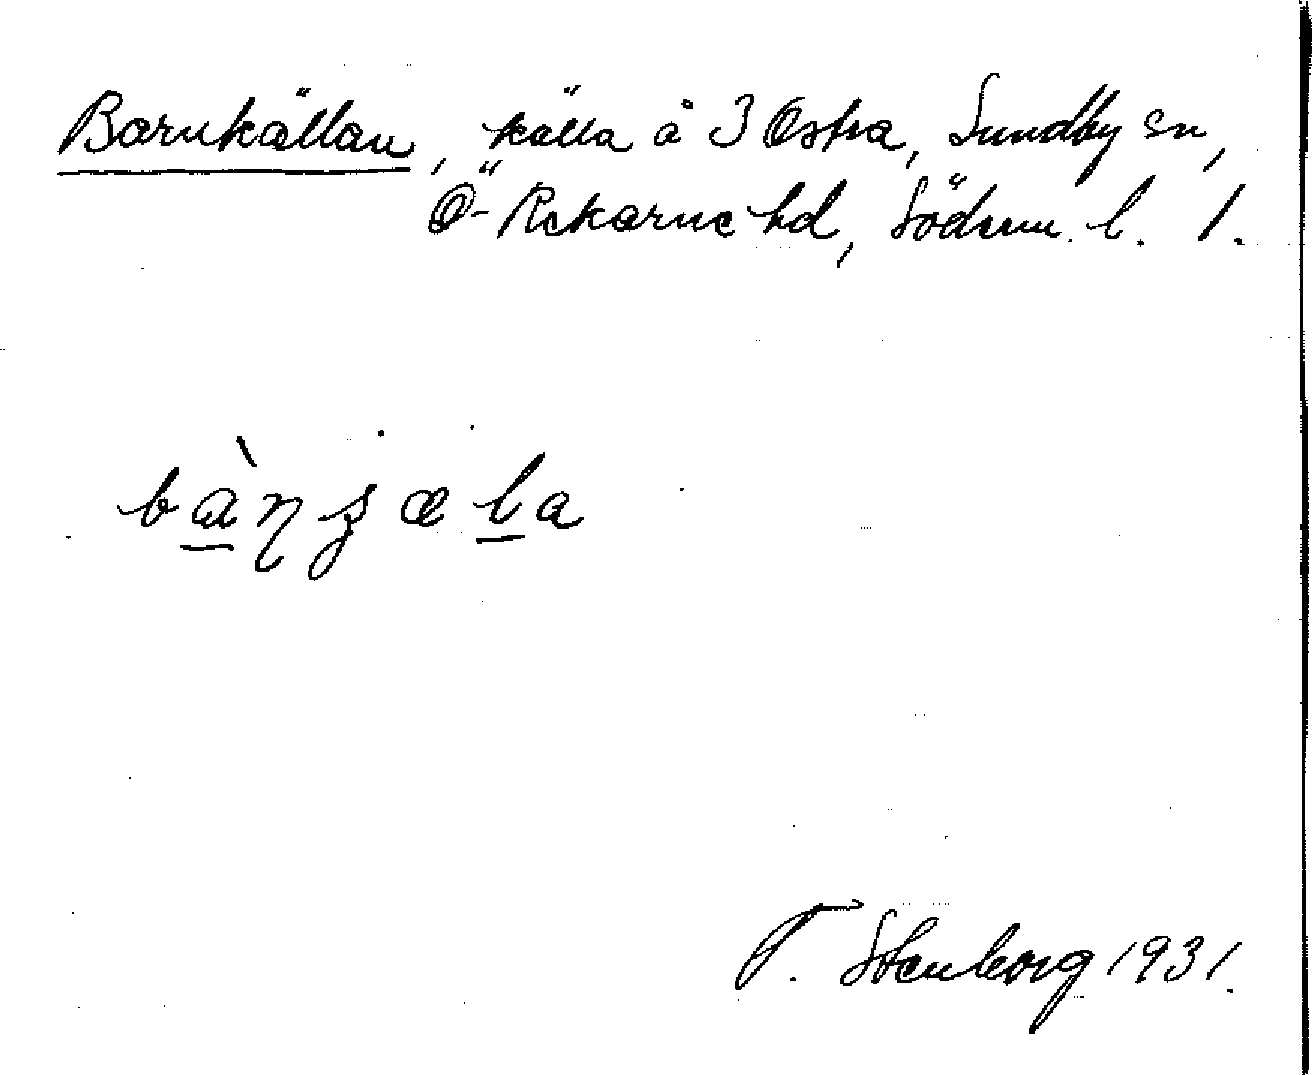 Barnkällan, källa å J Östra, Sundby sn,
Ö-Rekarne hd, Söderm. l. 1.
bàꞃʒæla
T. Stenborg 1931.